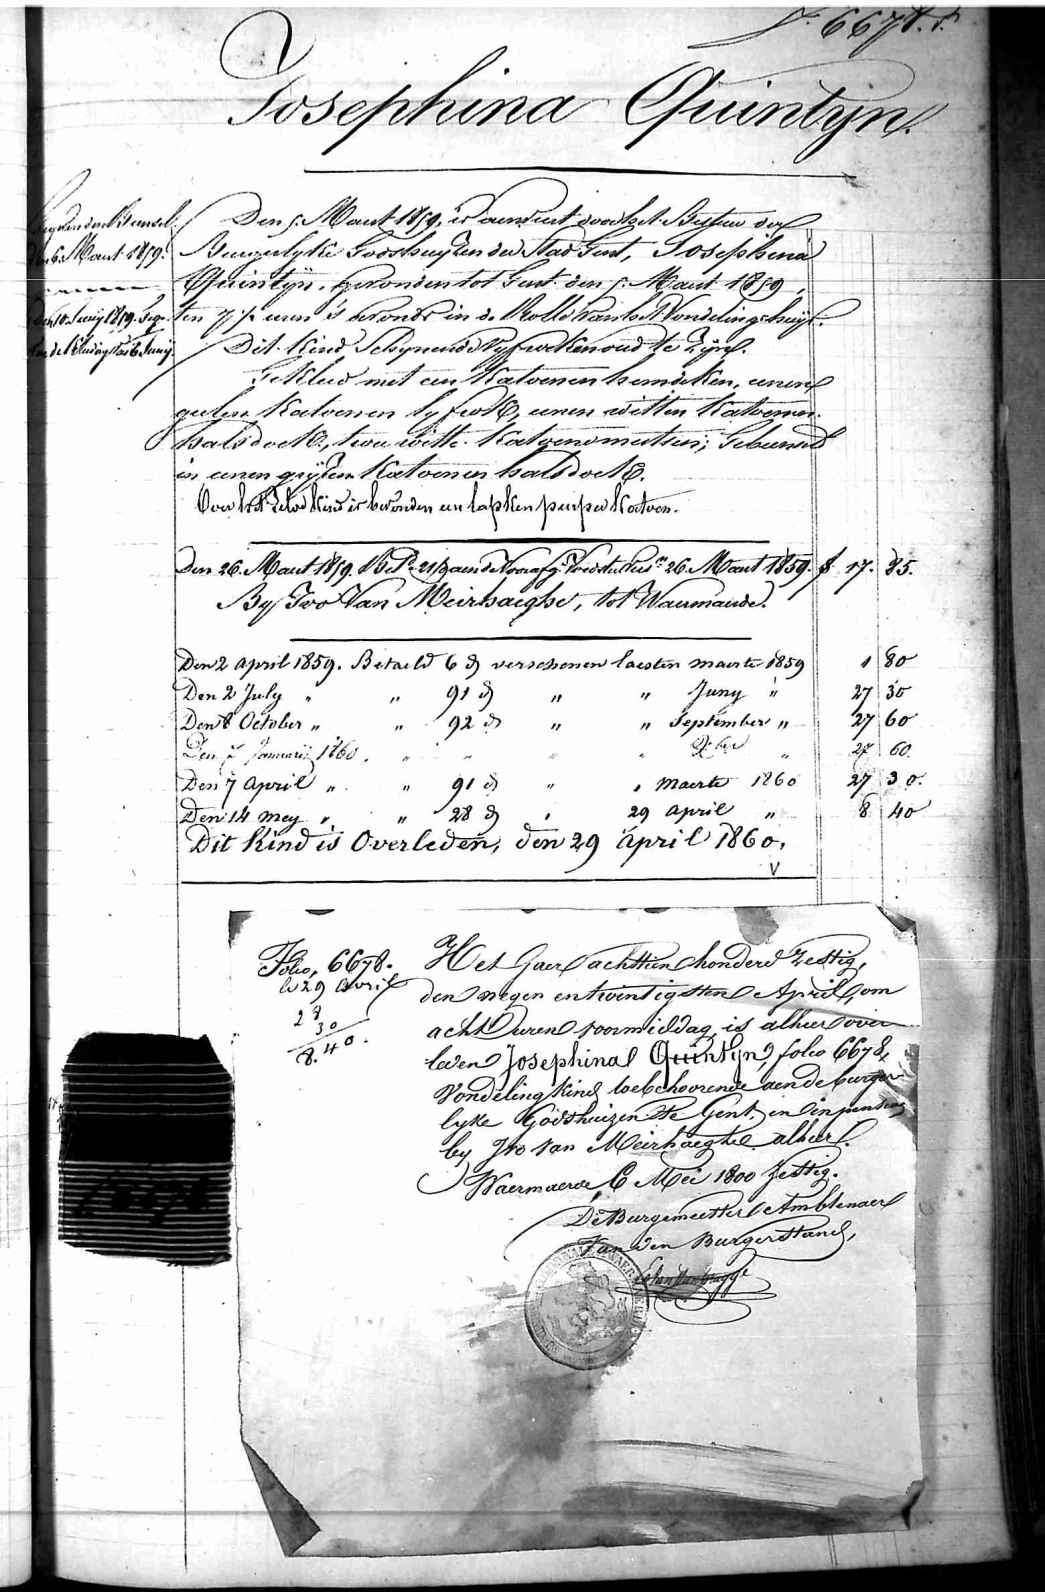 F.° 6678.
Josephina Quintyn.
den 6. Maart 1859.
den 10. Juny 1859.
Den 5. Maart 1859, is aenveert door het Bestier der
Burgerlyke Godshuyzen der Stad Gent, Josephina
Quintyn, gevonden tot Gent den 5. Maart 1859,
ten 7 ½ uren 's avonds in de Rolle van het Vondelingshuys.
Dit kind schynende vyf weken oud te zyn.
Gekleed met een katoenen hemdeken, eenen
geelen katoenen lyfrok, eenen witten katoenen
halsdoek, twee witte katoene mutsen; gebunseld
in eenen gryzen katoenen halsdoek.
Over het zelve kind is bevonden een lapken purper katoen.
Den 26. Maart 1859. 26 Maart 1859. f 17. 85.
By Ivo Van Meirhaeghe, tot Waermaerde.
Den 2 april 1859. Betaeld 6 d verschenen laesten maerte 1859 1 80
Den 2 July " " 91 d " " Juny " 27 30
Den 8 October " " 92 d " " September " 27 60
Den 7 Januarij 1860. " " " " Xber " 27 60.
Den 7 April " " 91 d " " maerte 1860 27 30.
Den 14 mey " " 28 d " 29 april " 8 40
Dit kind is Overleden, den 29 april 1860.
V
Folio, 6678.
le 29 avril
28
30
8.40.
Het Jaer achttien honderd Zestig,
den negen en twintigsten April, om
acht uren voormiddag, is alhier over
leden Josephina Quintyn, folio 6678,
Vondeling kind toebehoorende aen de burger
lyke Godshuizen te Gent, en in pensioen
by Ivo van Meirhaeghe alhier.
Waermaerde 6 Mei 1800 Zestig.
De Burgemeester Ambtenaer
Van den Burgerstand,